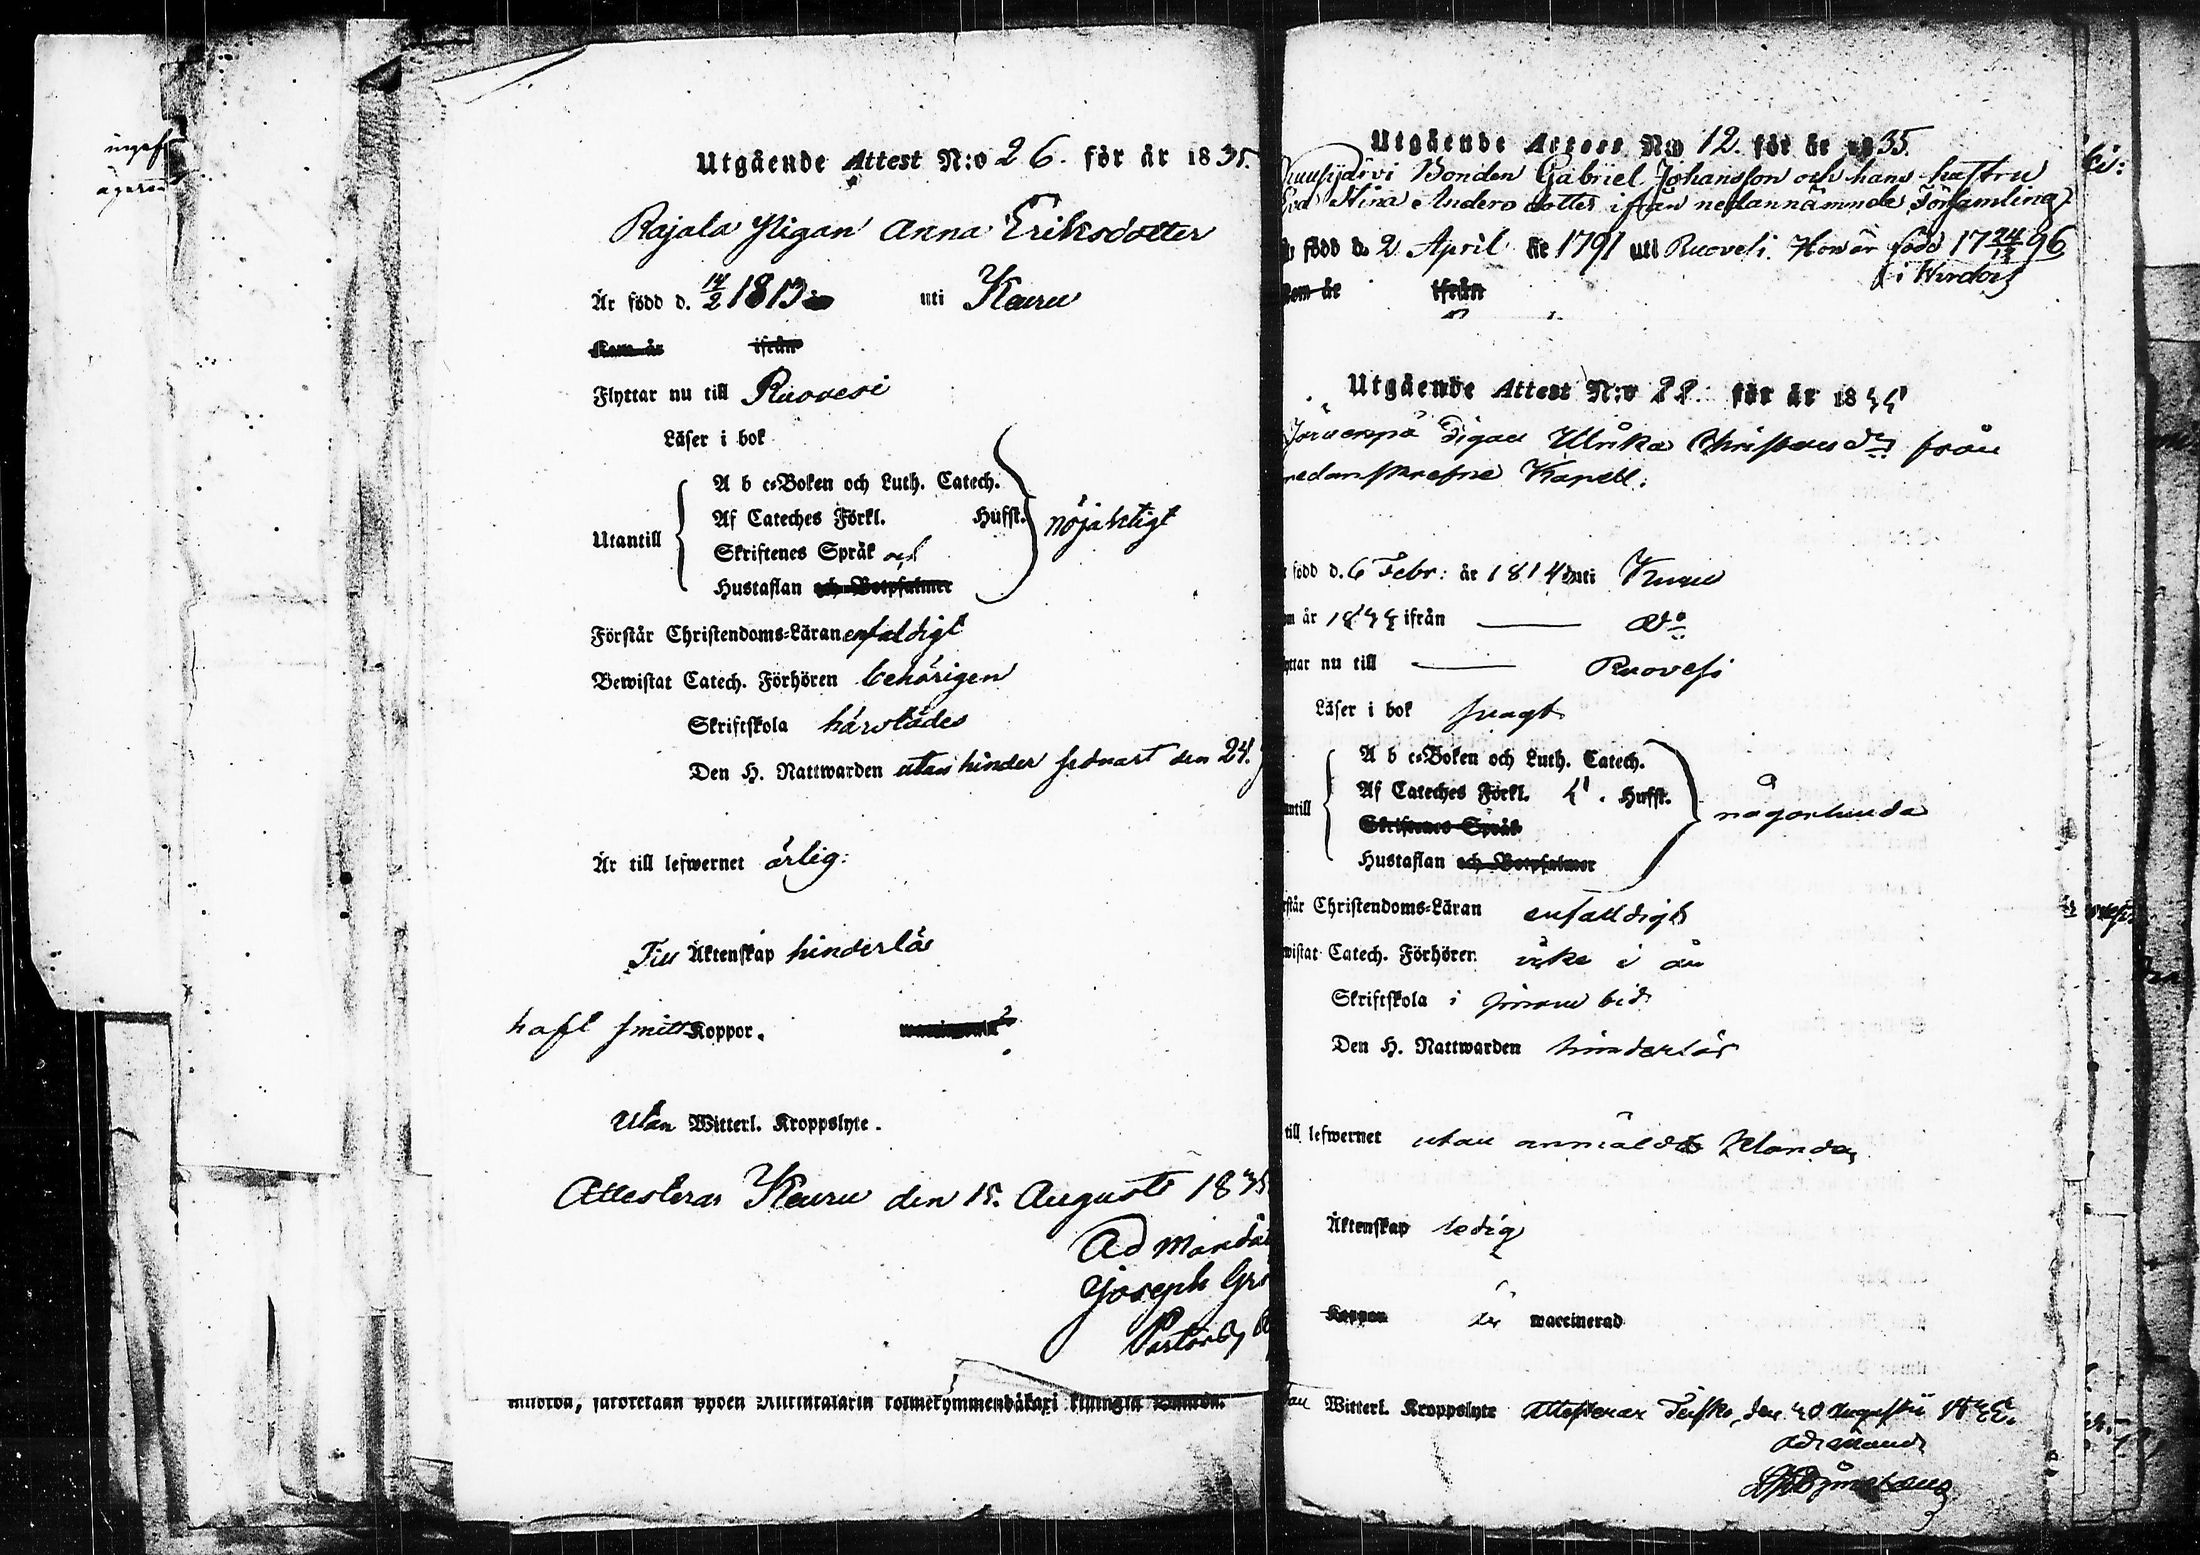 Utgående Attest N:o 26. för år 1835.
Rajala Pigan Anna Eriksdotter
Är född d. 14/2 1813 uti Keuru
Kom år ifrån
Flyttar nu till Ruovesi
Läser i bok
A b c-Boken och Luth. Catech.
Af Cateches Förkl. Hufst.
Utantill nöjaktigt
Skriftenes Språk och
Hustaflan och Botpsalmer
Förstår Christendoms-Läran enfaldigt
Bewistat Catech. Förhören behörigen
Skriftskola härstädes
Den H. Nattwarden utan hinder sednast den 24.
Är till lefwernet ärlig.
Till Äktenskap hinderlös
haft Koppor.
Utan Witterl. Kroppslyte.
Attesteras Keuru den 15. Augusti 1835
Ad Mandat
Joseph
Utgående Attest N:o 12. för år 1835.
Bonden Gabriel Johansson och hans hustru
Stina Anders dotter ifrån nedannämnde Församling
född d. 2 April år 1791 uti Ruovesi. Hon är född 17 24/12 96
i Wirdois
Kom år ifrån
Utgående Attest N:o 22. för år 1835
Järvenpä Pigan Ulrika Christersdr från
nedanskrefne Kapell.
född d. 6 Febr: år 1814 uti Kuru
år 1833 ifrån — do
Flyttar nu till — Ruovesi
Läser i bok svagt
A b c-Boken och Luth. Catech.
Af Cateches Förkl. 5. Hufst.
någorlunda
Skriftenes Språk
Hustaflan och Botpsalmer
Christendoms-Läran enfaldigt
Catech. Förhören
Skriftskola i sinom tid
Den H. Nattwarden hinderlös
till lefwernet utan anmäldt klander
Äktenskap ledig
Koppor är waccinerad
Witterl. Kroppslyte Attesterar Teisko, den 30 Augusti 1835.
Ad Mand: